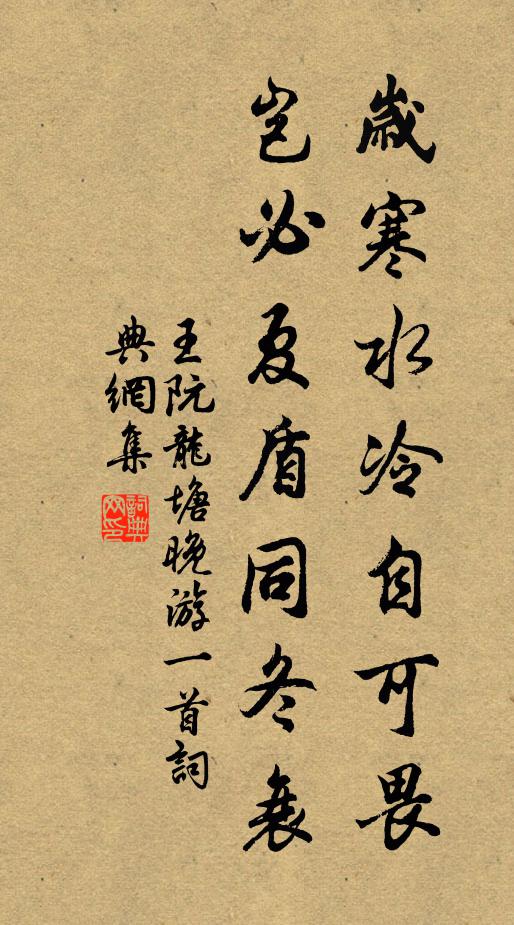 歲寒水冷自可畏
豈必夏盾同冬衰
王阮龍塘晚游一首詞
典網集
詞典网印